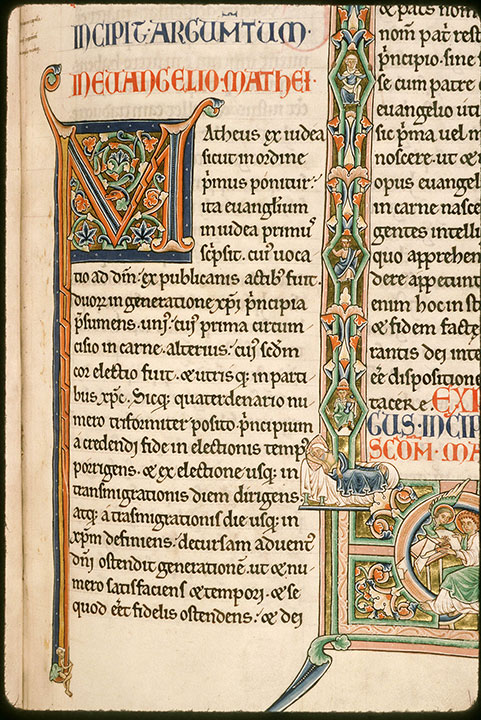 INCIPIT·ARGUMTUM·
IN EUANGELIO·MATHEI·
MAtheus ex iudea
sicut in ordine
p̄mus ponitur:
ita euangl̄ium
in iudea primu᷒
sc̄psit. cui᷒ uoca
tio ad dm̄: ex publicanis actib᷒ fuit.
duoꝝ in generatione xp̄i p̄ncipia
p̄sumens. uni᷒: cui᷒ prima circum
cisio in carne. alterius: cui᷒ scd̄m
cor electio fuit. & utrisq; in parti
bus xp̄c. Sicq; quaterdenario nu
mero triformiter posito p̄ncipium
a credendi fide in electionis temp᷒
porrigens. & ex electione usq; in
transmigrationis diem dirigens.
atq; a trasmigrationis die usq; in
xp̄m definiens: decursam aduent᷒
dn̄i ostendit generationem: ut & nu
mero satisfaciens & tempori. & se
quod eēt fidelis ostendens: & dei
& pats nom
nom̄ pat̄ rest
p̄ncipio. sine
se cum patre
euangelio uti
sic p̄ma uel m
noscere. ut &
opus euangel
in carne nasce
gentes intelli
quo apprehen
dere appetunt
enim hoc in st
& fidem factę
rantis dei inte
eē dispositione
tacer̄e. EXP
GUS·INCIP
SCDM·MA